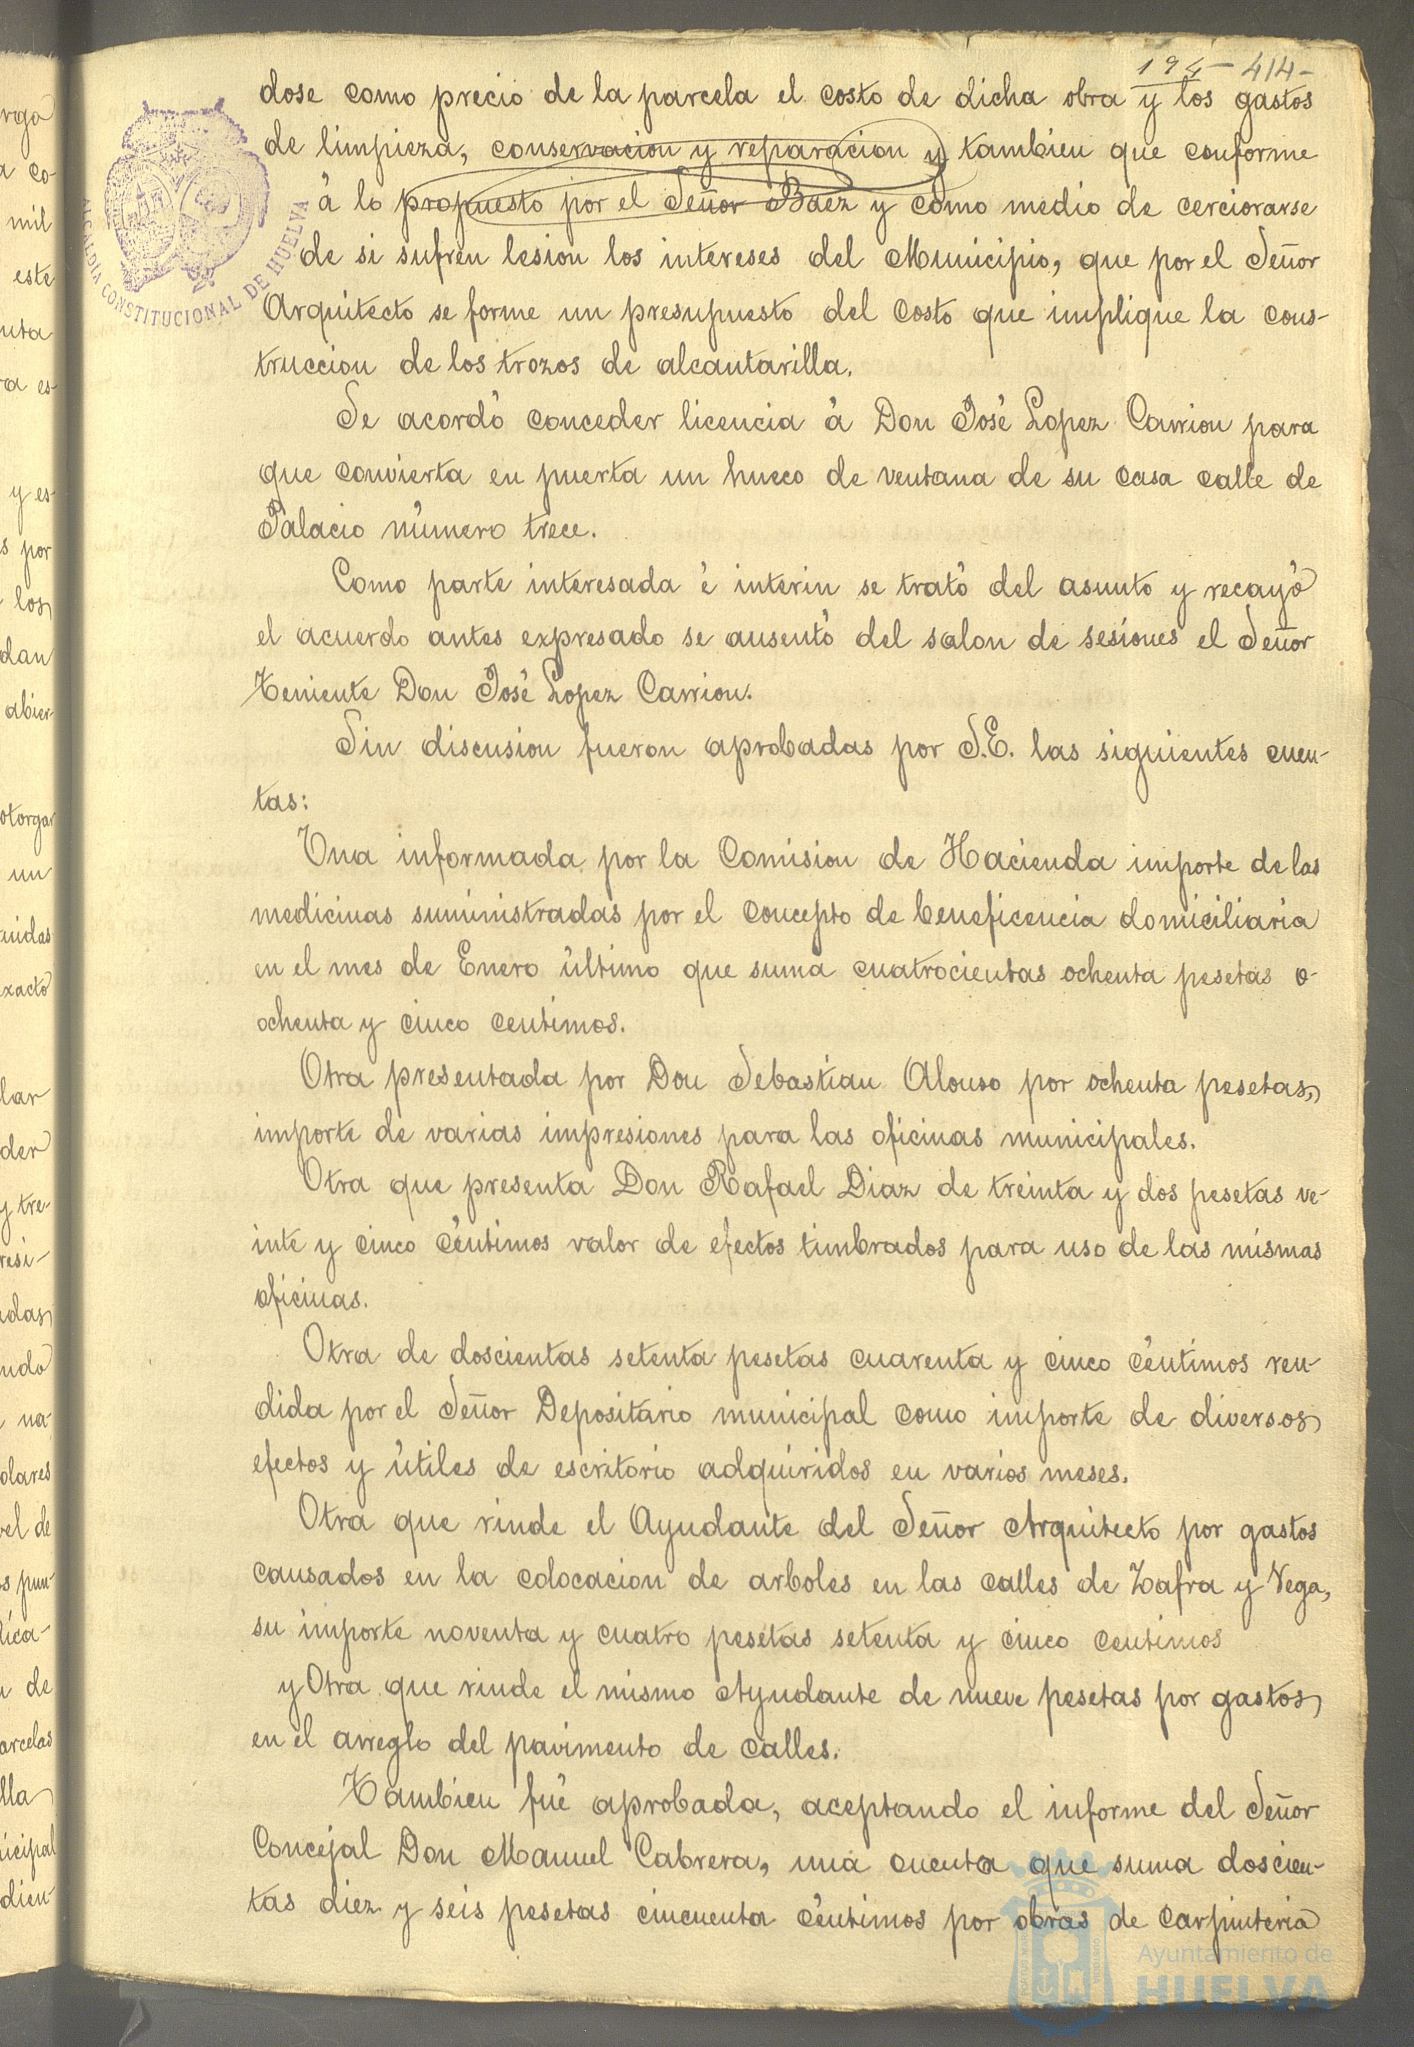 194 - 414 -
dose como precio de la parcela el costo de dicha obra y los gastos
de limpieza, conservacion y reparacion y tambien que conforme
á lo propuesto por el Señor Báez y como medio de cerciorarse
de si sufren lesion los intereses del Municipio, que por el Señor
Arquitecto se forme un presupuesto del costo que implique la cons-
truccion de los trozos de alcantarilla.
Se acordó conceder licencia á Don José Lopez Carrion para
que convierta en puerta un hueco de ventana de su casa calle de
Palacio número trece.
Como parte interesada é interin se trató del asunto y recayó
el acuerdo antes expresado se ausentó del salon de sesiones el Señor
Teniente Don José Lopez Carrion.
Sin discusion fueron aprobadas por S.E. las siguientes cuen-
tas:
Una informada por la Comision de Hacienda importe de las
medicinas suministradas por el concepto de beneficencia domiciliaria
en el mes de Enero último que suma cuatrocientas ochenta pesetas o-
ochenta y cinco centimos.
Otra presentada por Don Sebastian Alonso por ochenta pesetas,
importe de varias impresiones para las oficinas municipales.
Otra que presenta Don Rafael Diaz de treinta y dos pesetas ve-
inte y cinco céntimos valor de efectos timbrados para uso de las mismas
oficinas.
Otra de doscientas setenta pesetas cuarenta y cinco céntimos ren-
dida por el Señor Depositario municipal como importe de diversos
efectos y útiles de escritorio adquiridos en varios meses.
Otra que rinde el Ayudante del Señor Arquitecto por gastos
causados en la colocacion de arboles en las calles de Zafra y Vega,
su importe noventa y cuatro pesetas setenta y cinco centimos
y Otra que rinde el mismo Ayudante de nueve pesetas por gastos
en el arreglo del pavimento de calles.
Tambien fué aprobada, aceptando el informe del Señor
Concejal Don Manuel Cabrera, una cuenta que suma doscien-
tas diez y seis pesetas cincuenta céntimos por obras de carpinteria
ALCALDIA CONSTITUCIONAL DE HUELVA
Ayuntamiento de
HUELVA